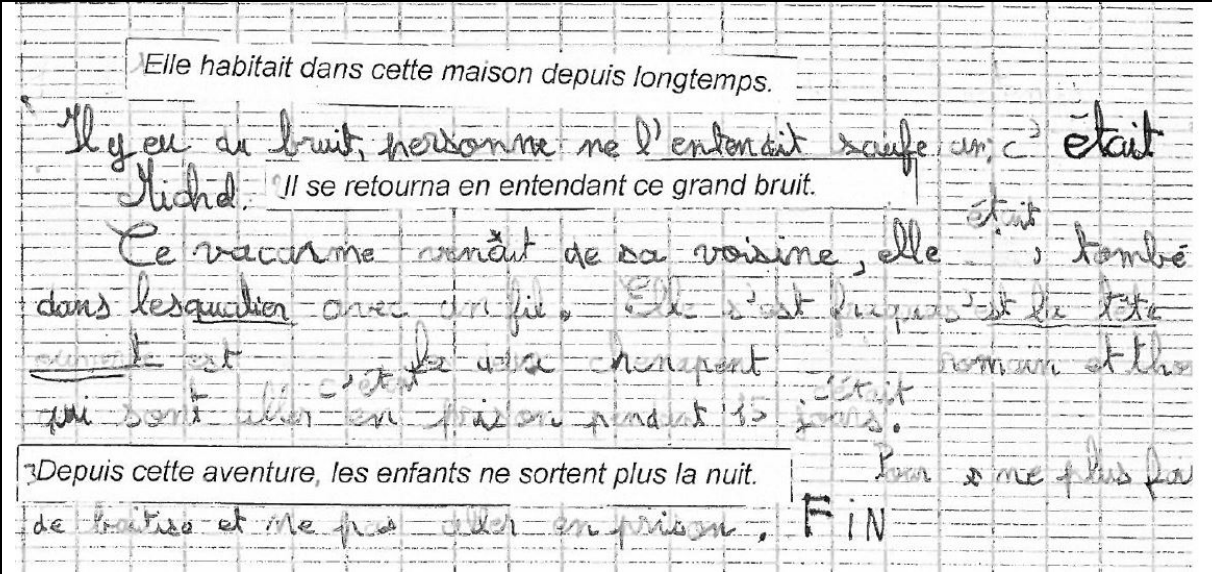 Elle habitait dans cette maison depuis longtemps.
Il y eu du bruit, personne ne l'entendit saufe un, c'était
Michel. Il se retourna en entendant ce grand bruit.
Ce vacarme venait de sa voisine, elle était, tombé
dans lesqualier avec un fil. Elle s'est la tête
est les deux chenapent romain et
qui sont aller en prison pendant 15 jours.
c'était c'était
Depuis cette aventure, les enfants ne sortent plus la nuit. Pour ne plus
de baitise et ne pas aller en prison. FiN